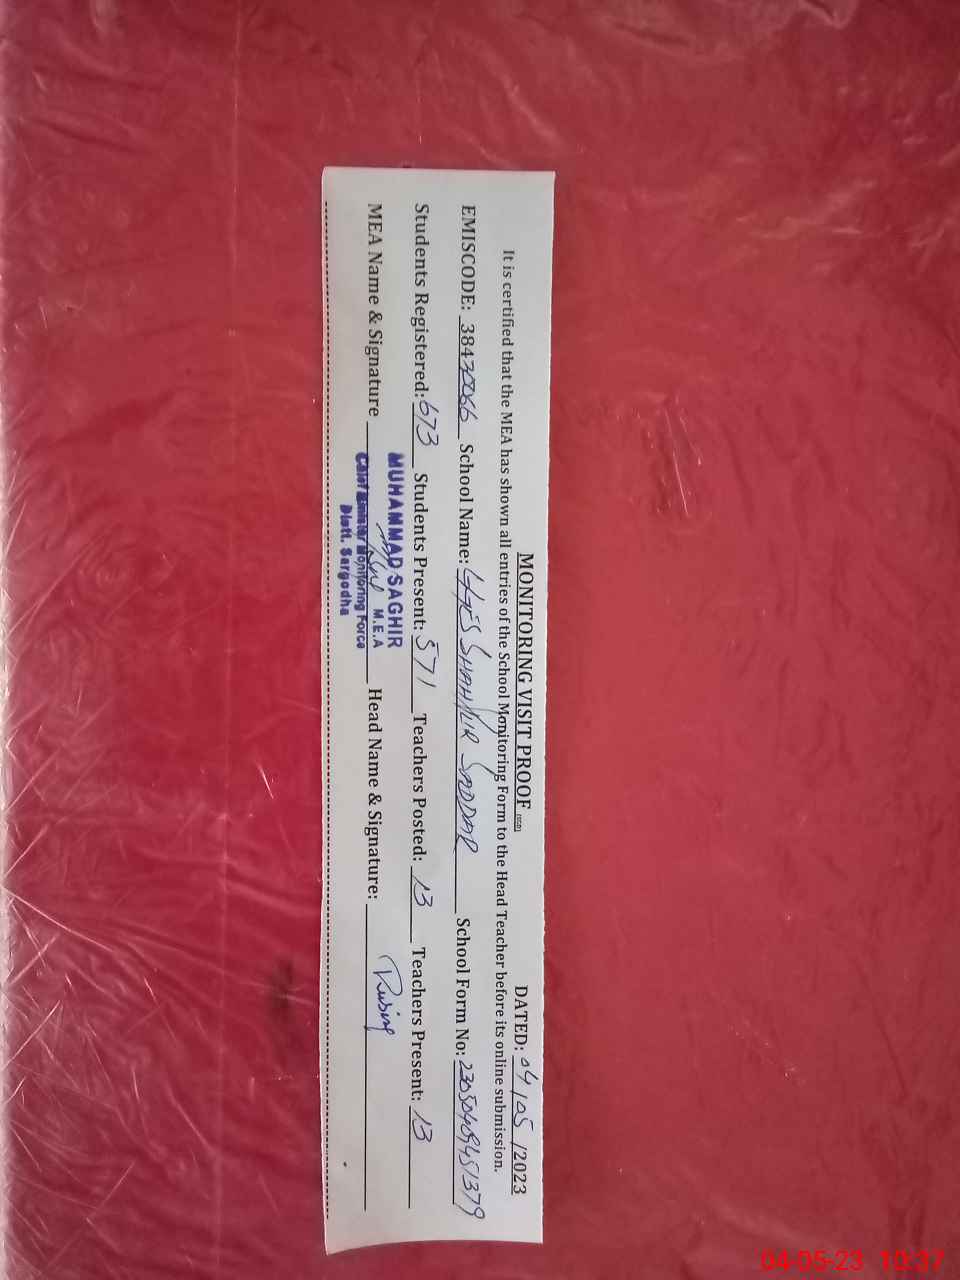 MONITORING VISIT PROOF
DATED: 04/05/2023
It is certified that the MEA has shown all entries of the School Monitoring Form to the Head Teacher before its online submission.
EMISCODE: 38430066 School Name: GGES SHAHPUR SADDAR School Form No:
Students Registered: 673 Students Present: 571 Teachers Posted: 13 Teachers Present: 13
MEA Name & Signature MUHAMMAD SAGHIR Head Name & Signature:
M.E.A
Chief Minister Monitoring Force
Distt. Sargodha
04-05-23 10:37